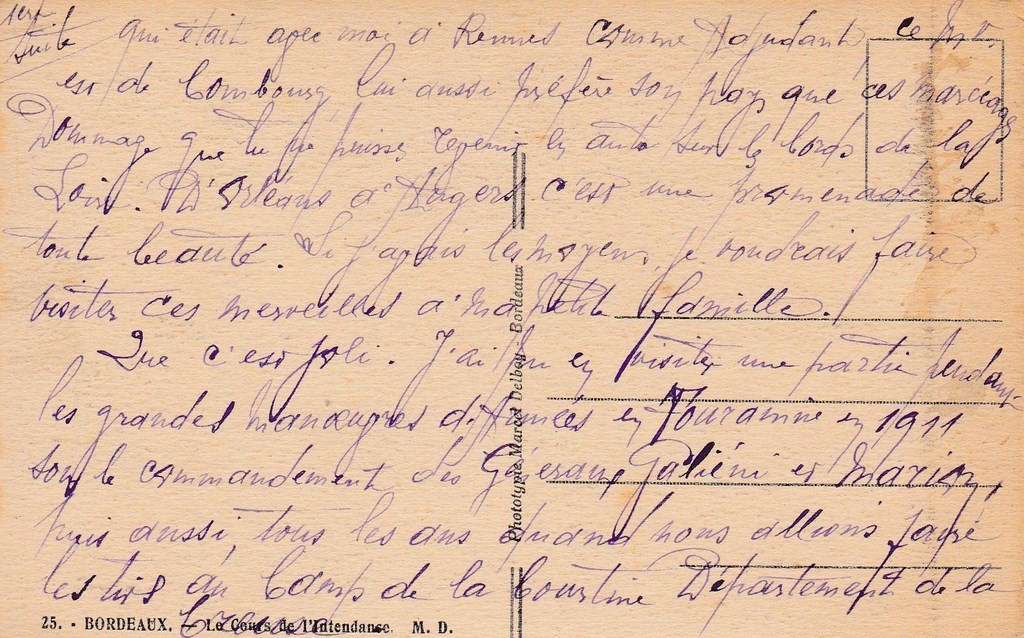 1ere
suite
qui était avec moi à Rennes comme Adjudant, ce Mr.
est de Combourg lui aussi préfère son pays que ces marécages
Dommage que tu ne puisses revenir en auto sur le bords de la
Loire. D'Orléans à Angers c'est une promenade de
toute beauté. Si j'avais les moyens, je voudrais faire
visiter ces merveilles à ma petite famille.
Que c'est joli. J'ai pu en visiter une partie pendant
les grandes manœuvres d'Armées en Touraine en 1911
sous le commandement des Généraux Galiéni et Marion,
puis aussi, tous les ans quand nous allions faire
les tirs au Camp de la Courtine Département de la
Creuse
Phototypie Marcel Delboy - Bordeaux
25. - BORDEAUX. — Le Cours de l'Intendance. M. D.